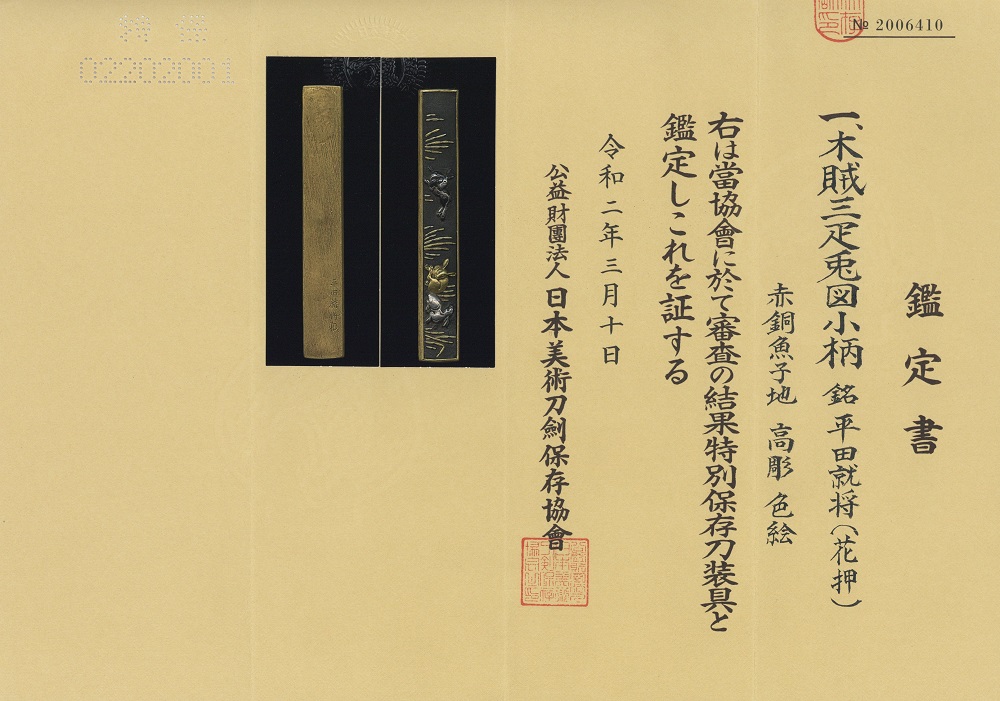 № 2006410
鑑定書
一、木賊三疋兎図小柄 銘 平田就将(花押)
赤銅魚子地 高彫 色絵
右は當協會に於て審査の結果特別保存刀装具と
鑑定しこれを証する
令和二年三月十日
公益財團法人 日本美術刀劍保存協會
02202001